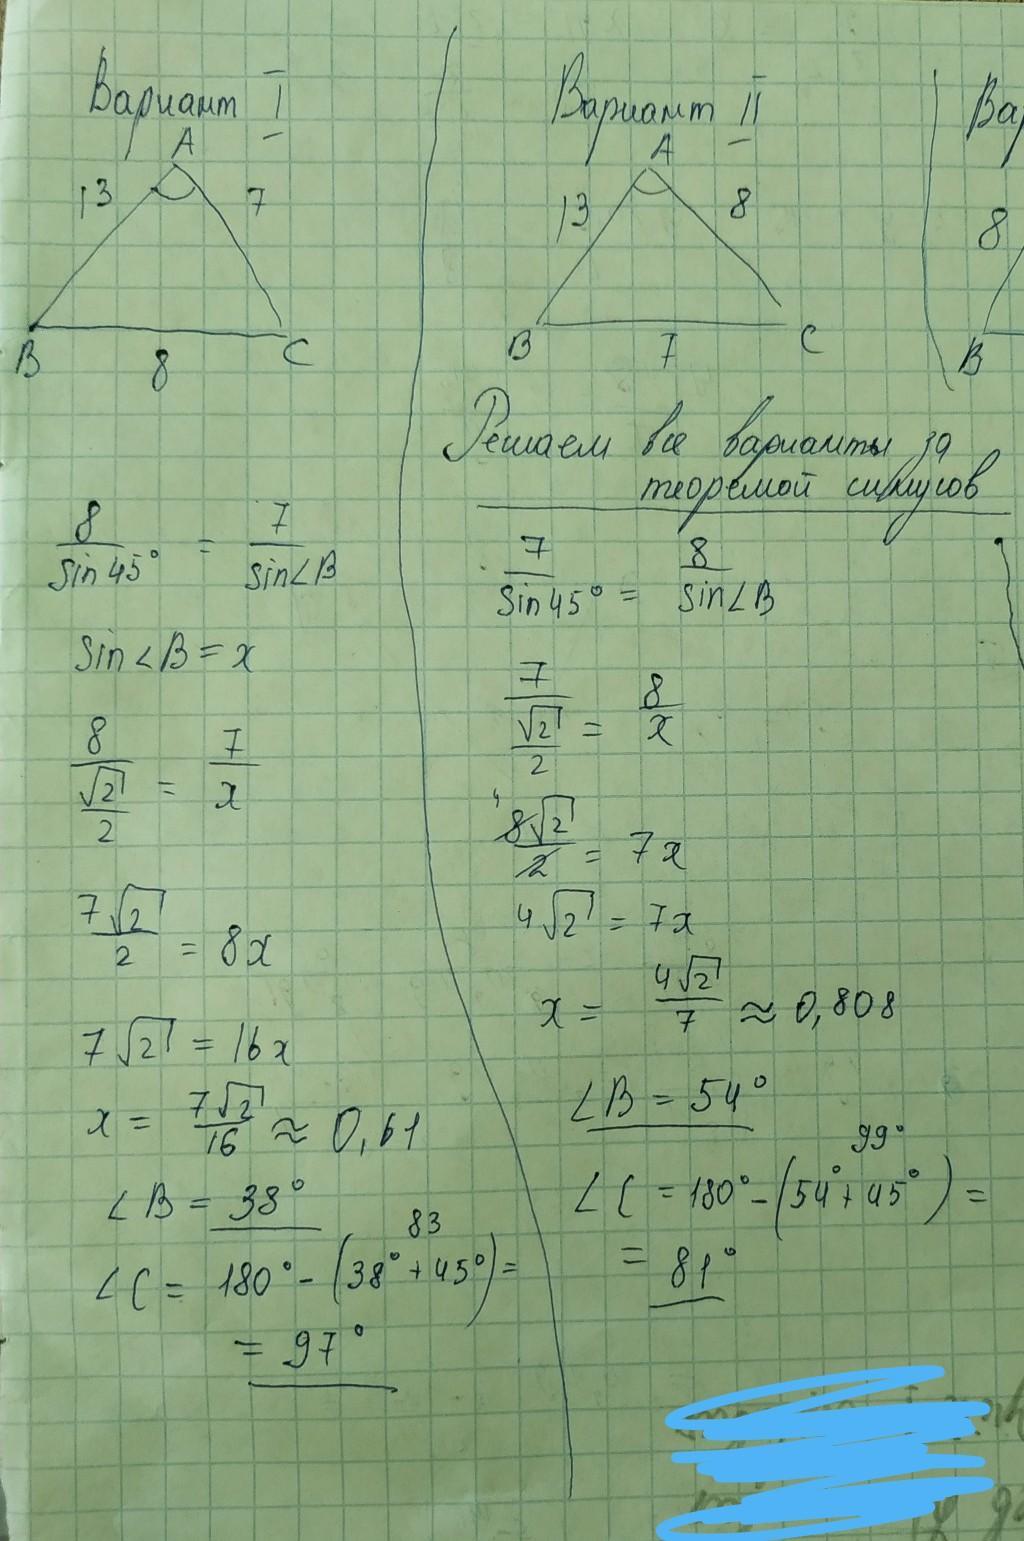 Вариант I
A
13 7
B 8 C
8/sin 45° = 7/sin∠B
sin∠B = x
8/(√2/2) = 7/x
7√2/2 = 8x
7√2 = 16x
x = 7√2/16 ≈ 0,61
∠B = 38°
83
∠C = 180° - (38° + 45°) =
= 97°
Вариант II
A
13 8
B 7 C
Решаем все варианты за
теоремой синусов
7/sin 45° = 8/sin∠B
7/(√2/2) = 8/x
4
8√2/2 = 7x
4√2 = 7x
x = 4√2/7 ≈ 0,808
∠B = 54°
99°
∠C = 180° - (54° + 45°) =
= 81°
Вар
8
B